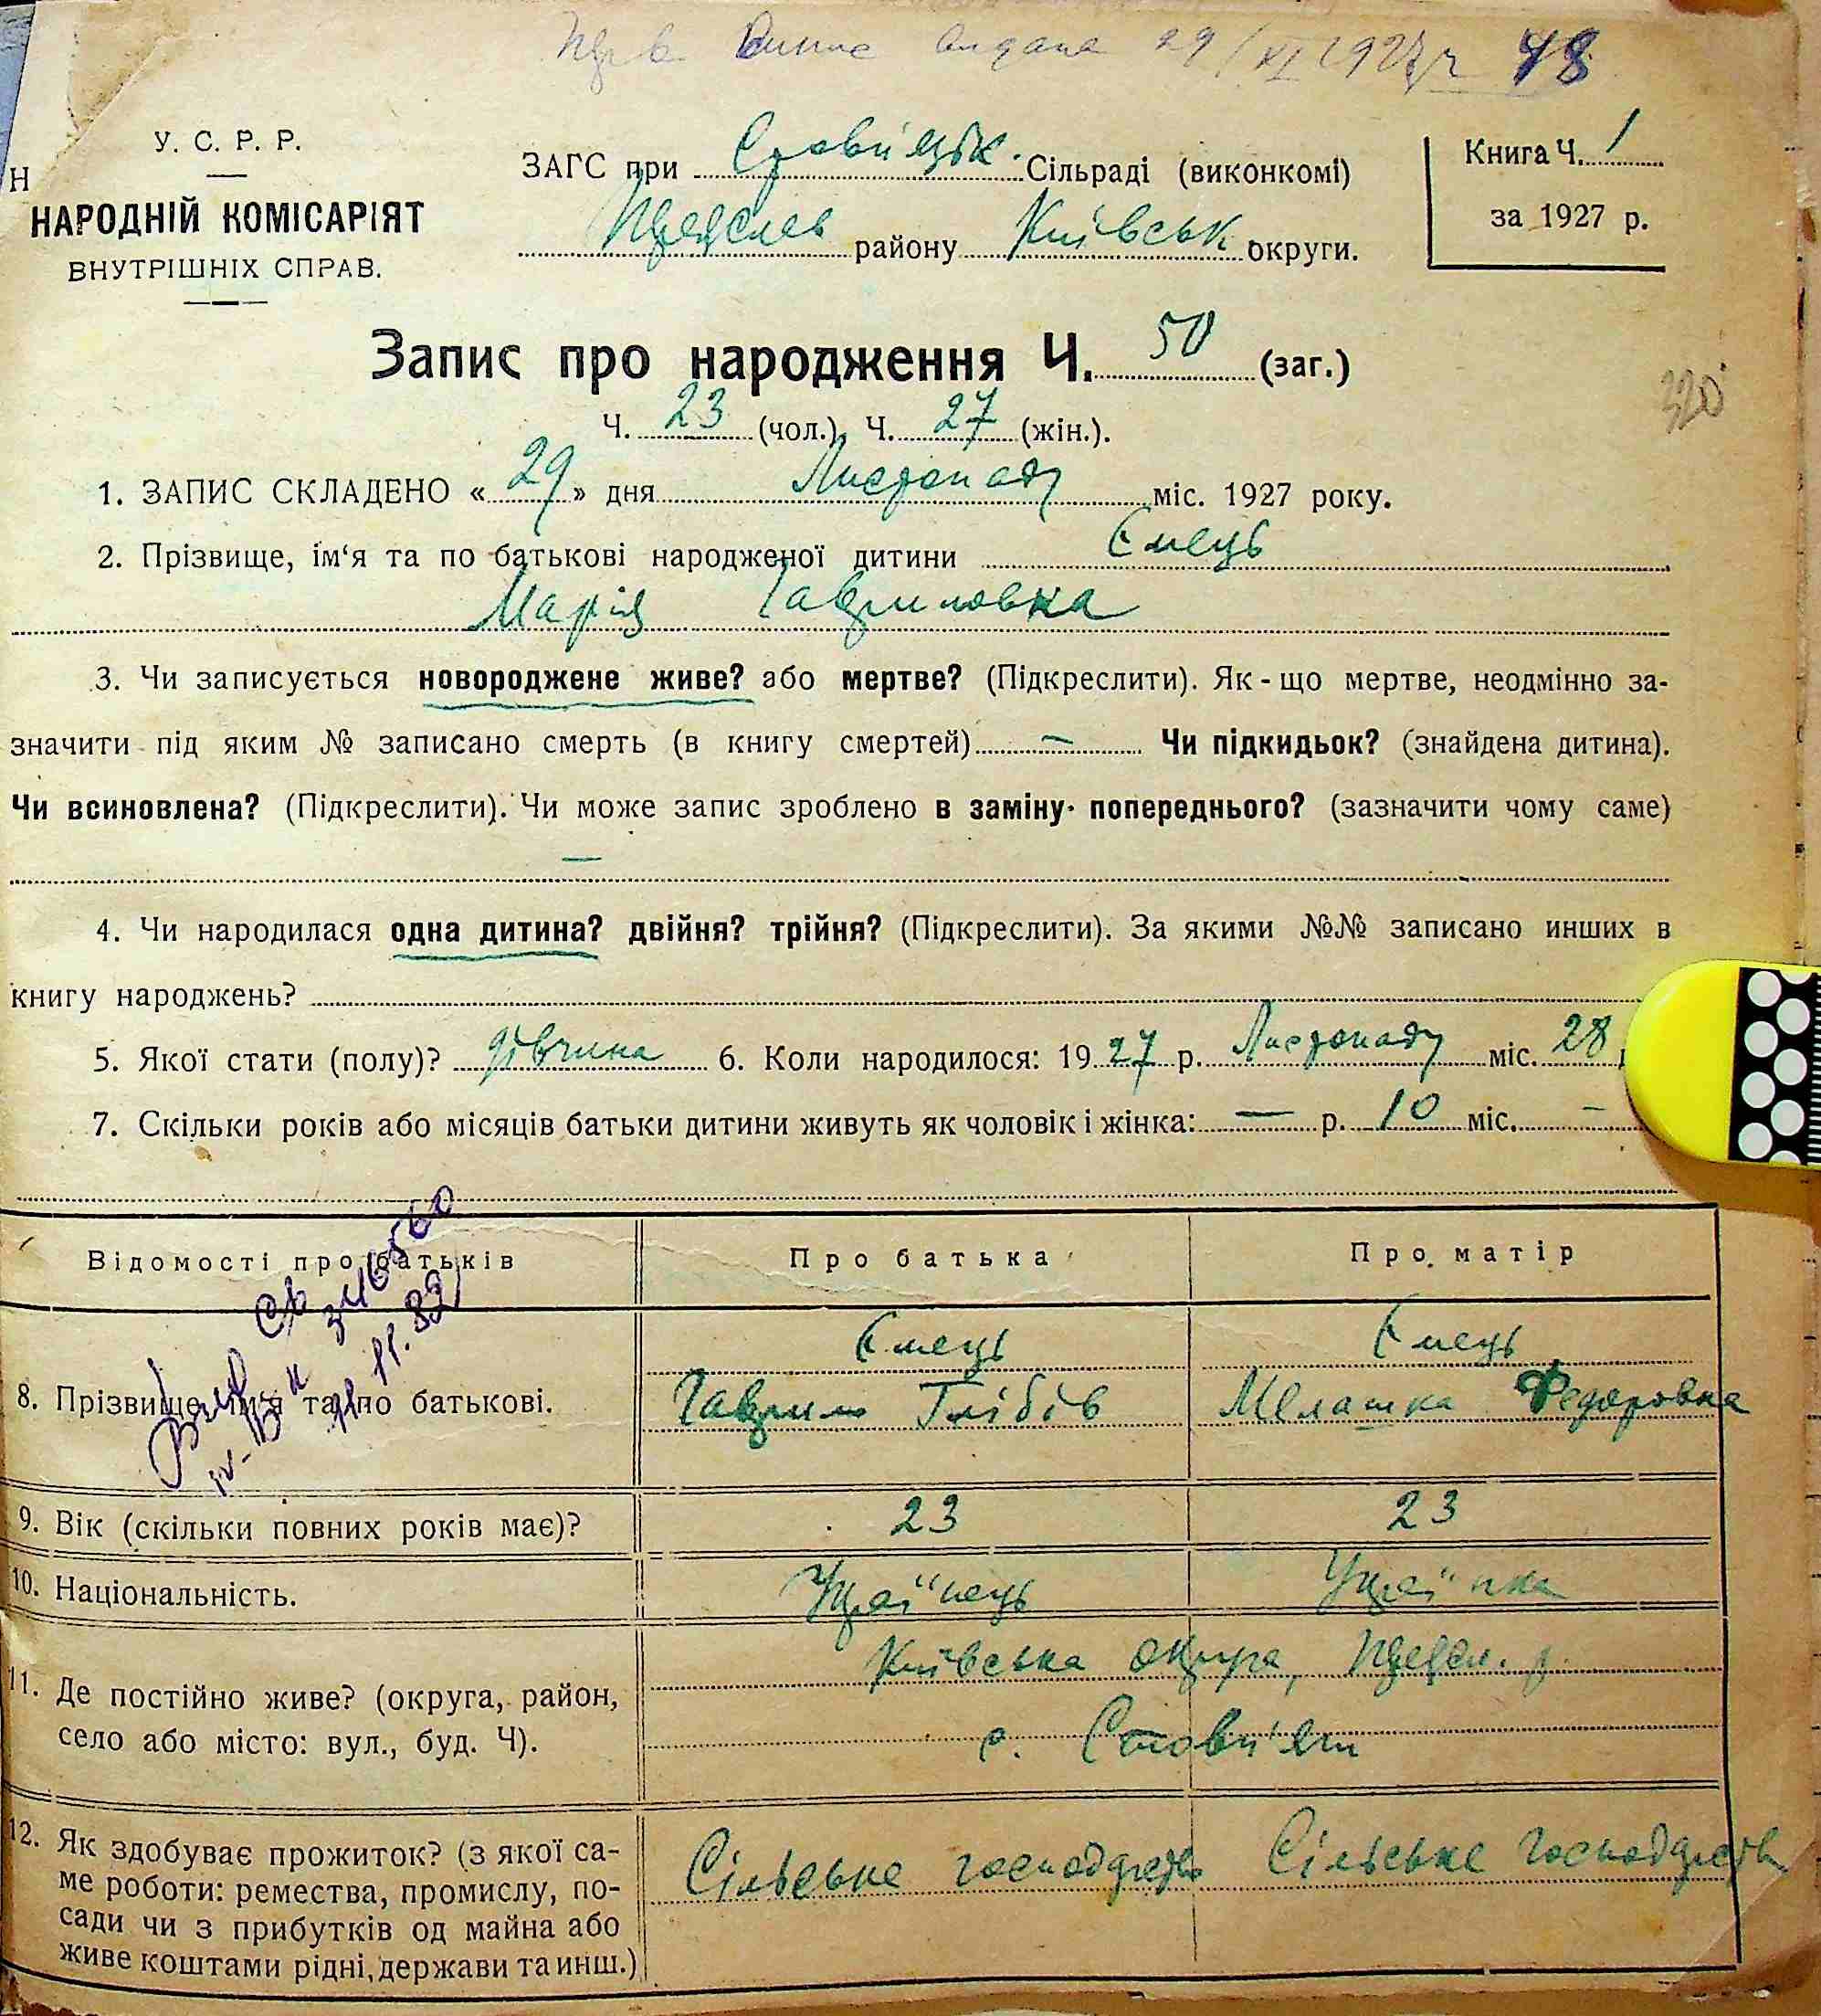 видана 29/XI 1927 р 48
У. С. Р. Р.
НАРОДНІЙ КОМІСАРІЯТ
ВНУТРІШНІХ СПРАВ.
Н
ЗАГС при Стовп'яцьк. Сільраді (виконкомі)
Переясл району Київськ округи.
Книга Ч. 1
за 1927 р.
Запис про народження Ч. 50 (заг.)
320
Ч. 23 (чол.), Ч. 27 (жін.).
1. ЗАПИС СКЛАДЕНО «29» дня Листопаду міс. 1927 року.
2. Прізвище, ім‘я та по батькові народженої дитини Ємець
Марія Гавриловка
3. Чи записується новороджене живе? або мертве? (Підкреслити). Як-що мертве, неодмінно за-
значити під яким № записано смерть (в книгу смертей) — Чи підкидьок? (знайдена дитина).
Чи всиновлена? (Підкреслити). Чи може запис зроблено в заміну попереднього? (зазначити чому саме)
—
4. Чи народилася одна дитина? двійня? трійня? (Підкреслити). За якими №№ записано инших в
книгу народжень?
5. Якої стати (полу)? дівчина 6. Коли народилося: 1927 р. Листопаду міс. 28
7. Скільки років або місяців батьки дитини живуть як чоловік і жінка: — р. 10 міс. —
Відомості про батьків Про батька Про матір
Ємець Ємець
8. Прізвище, ім'я та по батькові. Гаврило Глібів Мелашка Федоровна
9. Вік (скільки повних років має)? 23 23
10. Національність. Українець Українка
11. Де постійно живе? (округа, район, Київська округа, Переясл. р.
село або місто: вул., буд. Ч). с. Стовп'яги
12. Як здобуває прожиток? (з якої са- Сільське господарство Сільське господарство
ме роботи: ремества, промислу, по-
сади чи з прибутків од майна або
живе коштами рідні, держави та инш.)